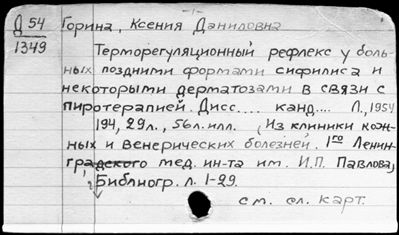 Д 54 Горина, Ксения Даниловна
1349
Терморегуляционный рефлекс у боль-
ных поздними формами сифилиса и
некоторыми дерматозами в связи с
пиротерапией. Дисс.... канд.... Л., 1954
194, 29л., 56л. илл. (Из клиники кож-
ных и венерических болезней. 1го Ленин-
градского мед. ин-та им. И.П. Павлова)
Библиогр. л. 1-29.
см. сл. карт.